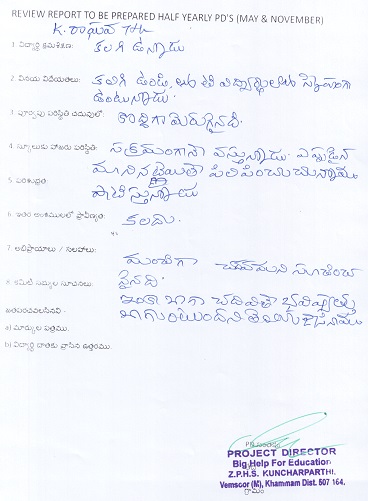 REVIEW REPORT TO BE PREPARED HALF YEARLY PD'S (MAY & NOVEMBER)
K. రాఘవ 7th
1 విద్యార్థి క్రమశిక్షణ: కలిగి ఉన్నాడు
2. వినయ విధేయతలు: కలిగి ఉండి, విద్యార్థులతో స్నేహంగా
ఉంటున్నాడు.
3 పూర్వపు పరిస్థితి చదువులో: కొద్దిగా మెరుగైనది.
4. స్కూలుకు హాజరు పరిస్థితి: సక్రమంగానే వస్తున్నాడు. ఎప్పుడైన
మానిన పిలిపించుచున్నాము
5. పరిశుభ్రత: పాటిస్తున్నాడు
6. ఇతర అంశములలో ప్రావీణ్యత: కలదు.
7 అభిప్రాయాలు / సలహాలు: మంచిగా చదవమని సూచించ
నైనది.
8. కమిటీ సభ్యుల సూచనలు: ఇంకా బాగా చదివితే భవిష్యత్తు
బాగుంటుందని
జతపరచవలసినవి -
a) మార్కుల పత్రము.
b) విద్యార్థి దాతకు వ్రాసిన ఉత్తరము.
PROJECT DIRECTOR
Big Help For Education
Z.P.H.S. KUNCHARPARTHI.
Vemscor (M), Khammam Dist. 507 164.
గ్రామం